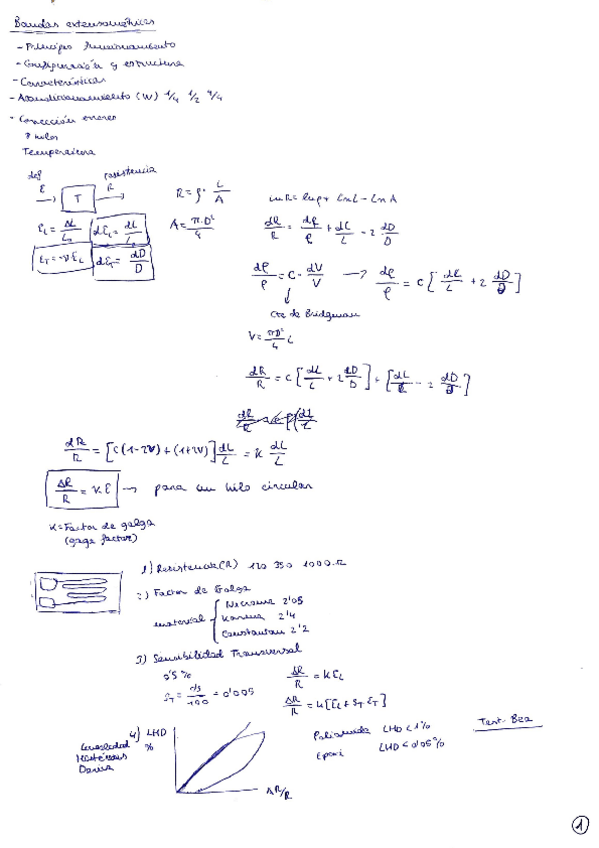 Bandas extensométricas
- Principio funcionamiento
- Configuración y estructura
- Características
- Acondicionamiento (W) 1/4 1/2 4/4
- Corrección errores
3 hilos
Temperatura
def resistencia
ε → T → R
R = ρ · L/A
ln R = ln ρ + ln L - ln A
ε_L = ΔL/L₀ dε_L = dL/L₀
A = π·D²/4
dR/R = dρ/ρ + dL/L - 2 dD/D
ε_T = -ν·ε_L dε_T = dD/D
dρ/ρ = C · dV/V → dρ/ρ = C [dL/L + 2 dD/D]
Cte de Bridgman
V = πD²/4 L
dR/R = C [dL/L + 2 dD/D] + [dL/L - 2 dD/D]
dR/R = [C(1-2ν) + (1+2ν)] dL/L = K dL/L
ΔR/R = K ε → para un hilo circular
K = Factor de galga
(gage factor)
1) Resistencia (R) 120 350 1000 Ω
2) Factor de Galga
material { Nicrome 2'05
Karma 2'4
Constantan 2'2
3) Sensibilidad Transversal
0'5 %
S_T = 0'5/100 = 0'005
ΔR/R = K ε_L
ΔR/R = K [ε_L + S_T ε_T]
4) LHD
%
Linealidad
Histéresis
Deriva
ΔR/R
Poliamida LHD < 1%
Epoxi LHD < 0'05 %
1